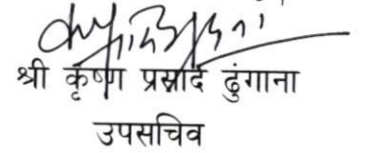 श्री कृष्ण प्रसाद ढुंगाना
उपसचिव